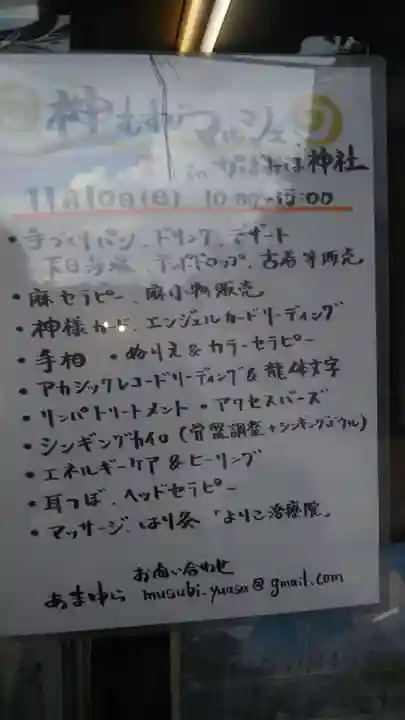 神むすびマルシェ
in かがみは神社
11月10日(日) 10:00~15:00
・手づくりパン、ドリンク、デザート
天日海塩、アンドドロップ、古着等販売
・麻セラピー、麻小物販売
・神様カード、エンジェルカードリーディング
・手相 ・ぬりえ&カラーセラピー
・アカシックレコードリーディング&龍体文字
・リンパトリートメント・アクセスバーズ
・シンギングカイロ(骨盤調整+シンギングボウル)
・エネルギーケア&ヒーリング
・耳つぼ、ヘッドセラピー
・マッサージ、はり灸「よりこ治療院」
お問い合わせ
あまゆら musubi.yuasa@gmail.com